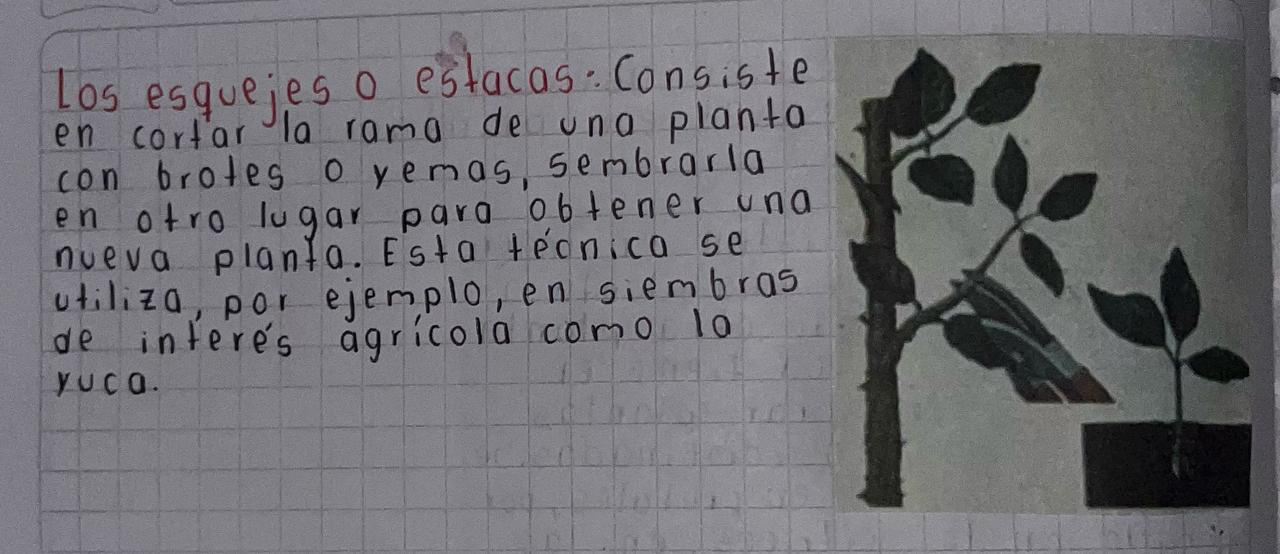 Los esquejes o estacas: Consiste
en cortar la rama de una planta
con brotes o yemas, sembrarla
en otro lugar para obtener una
nueva planta. Esta técnica se
utiliza, por ejemplo, en siembras
de interés agrícola como la
yuca.